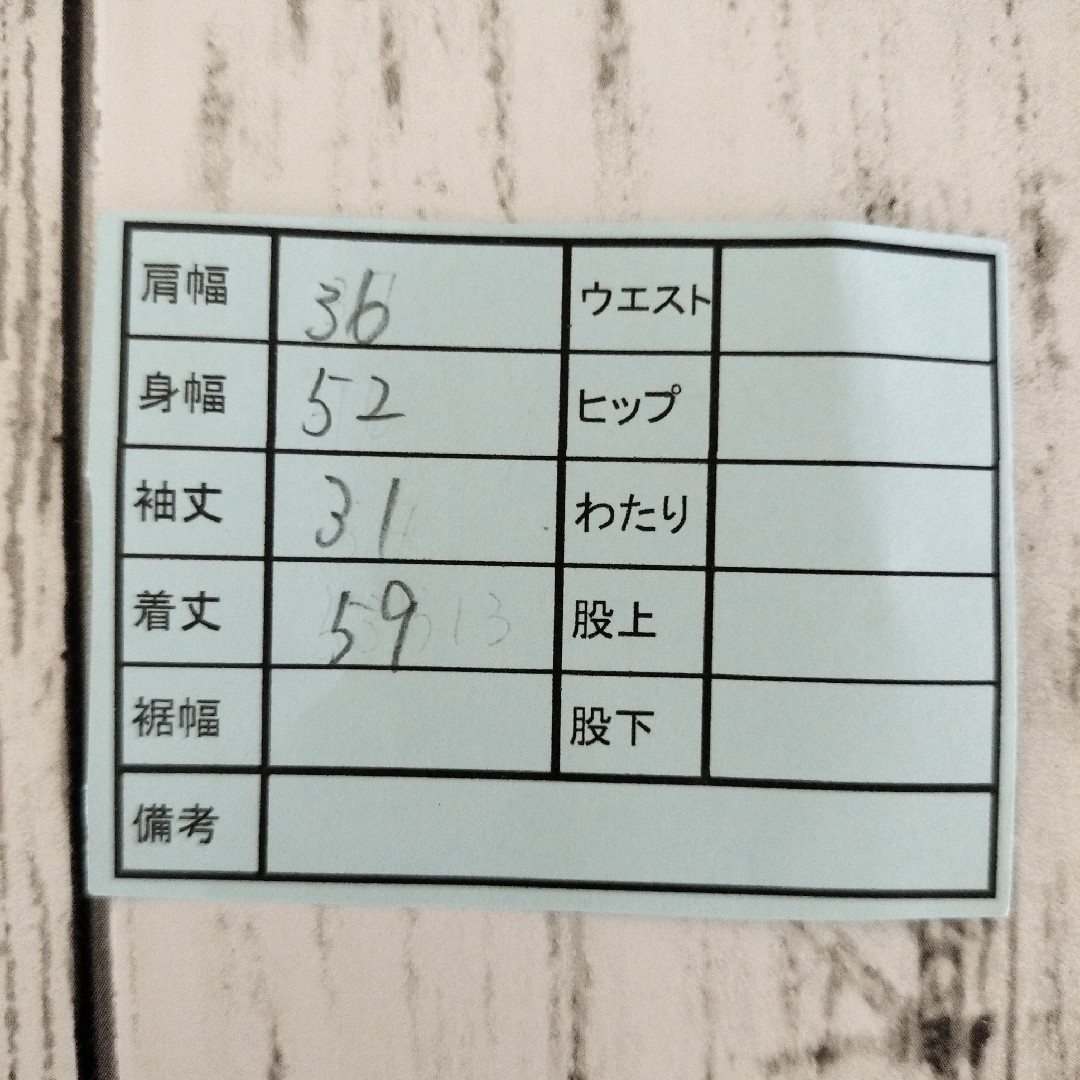 肩幅 36 ウエスト
身幅 52 ヒップ
袖丈 31 わたり
着丈 59 股上
裾幅 股下
備考